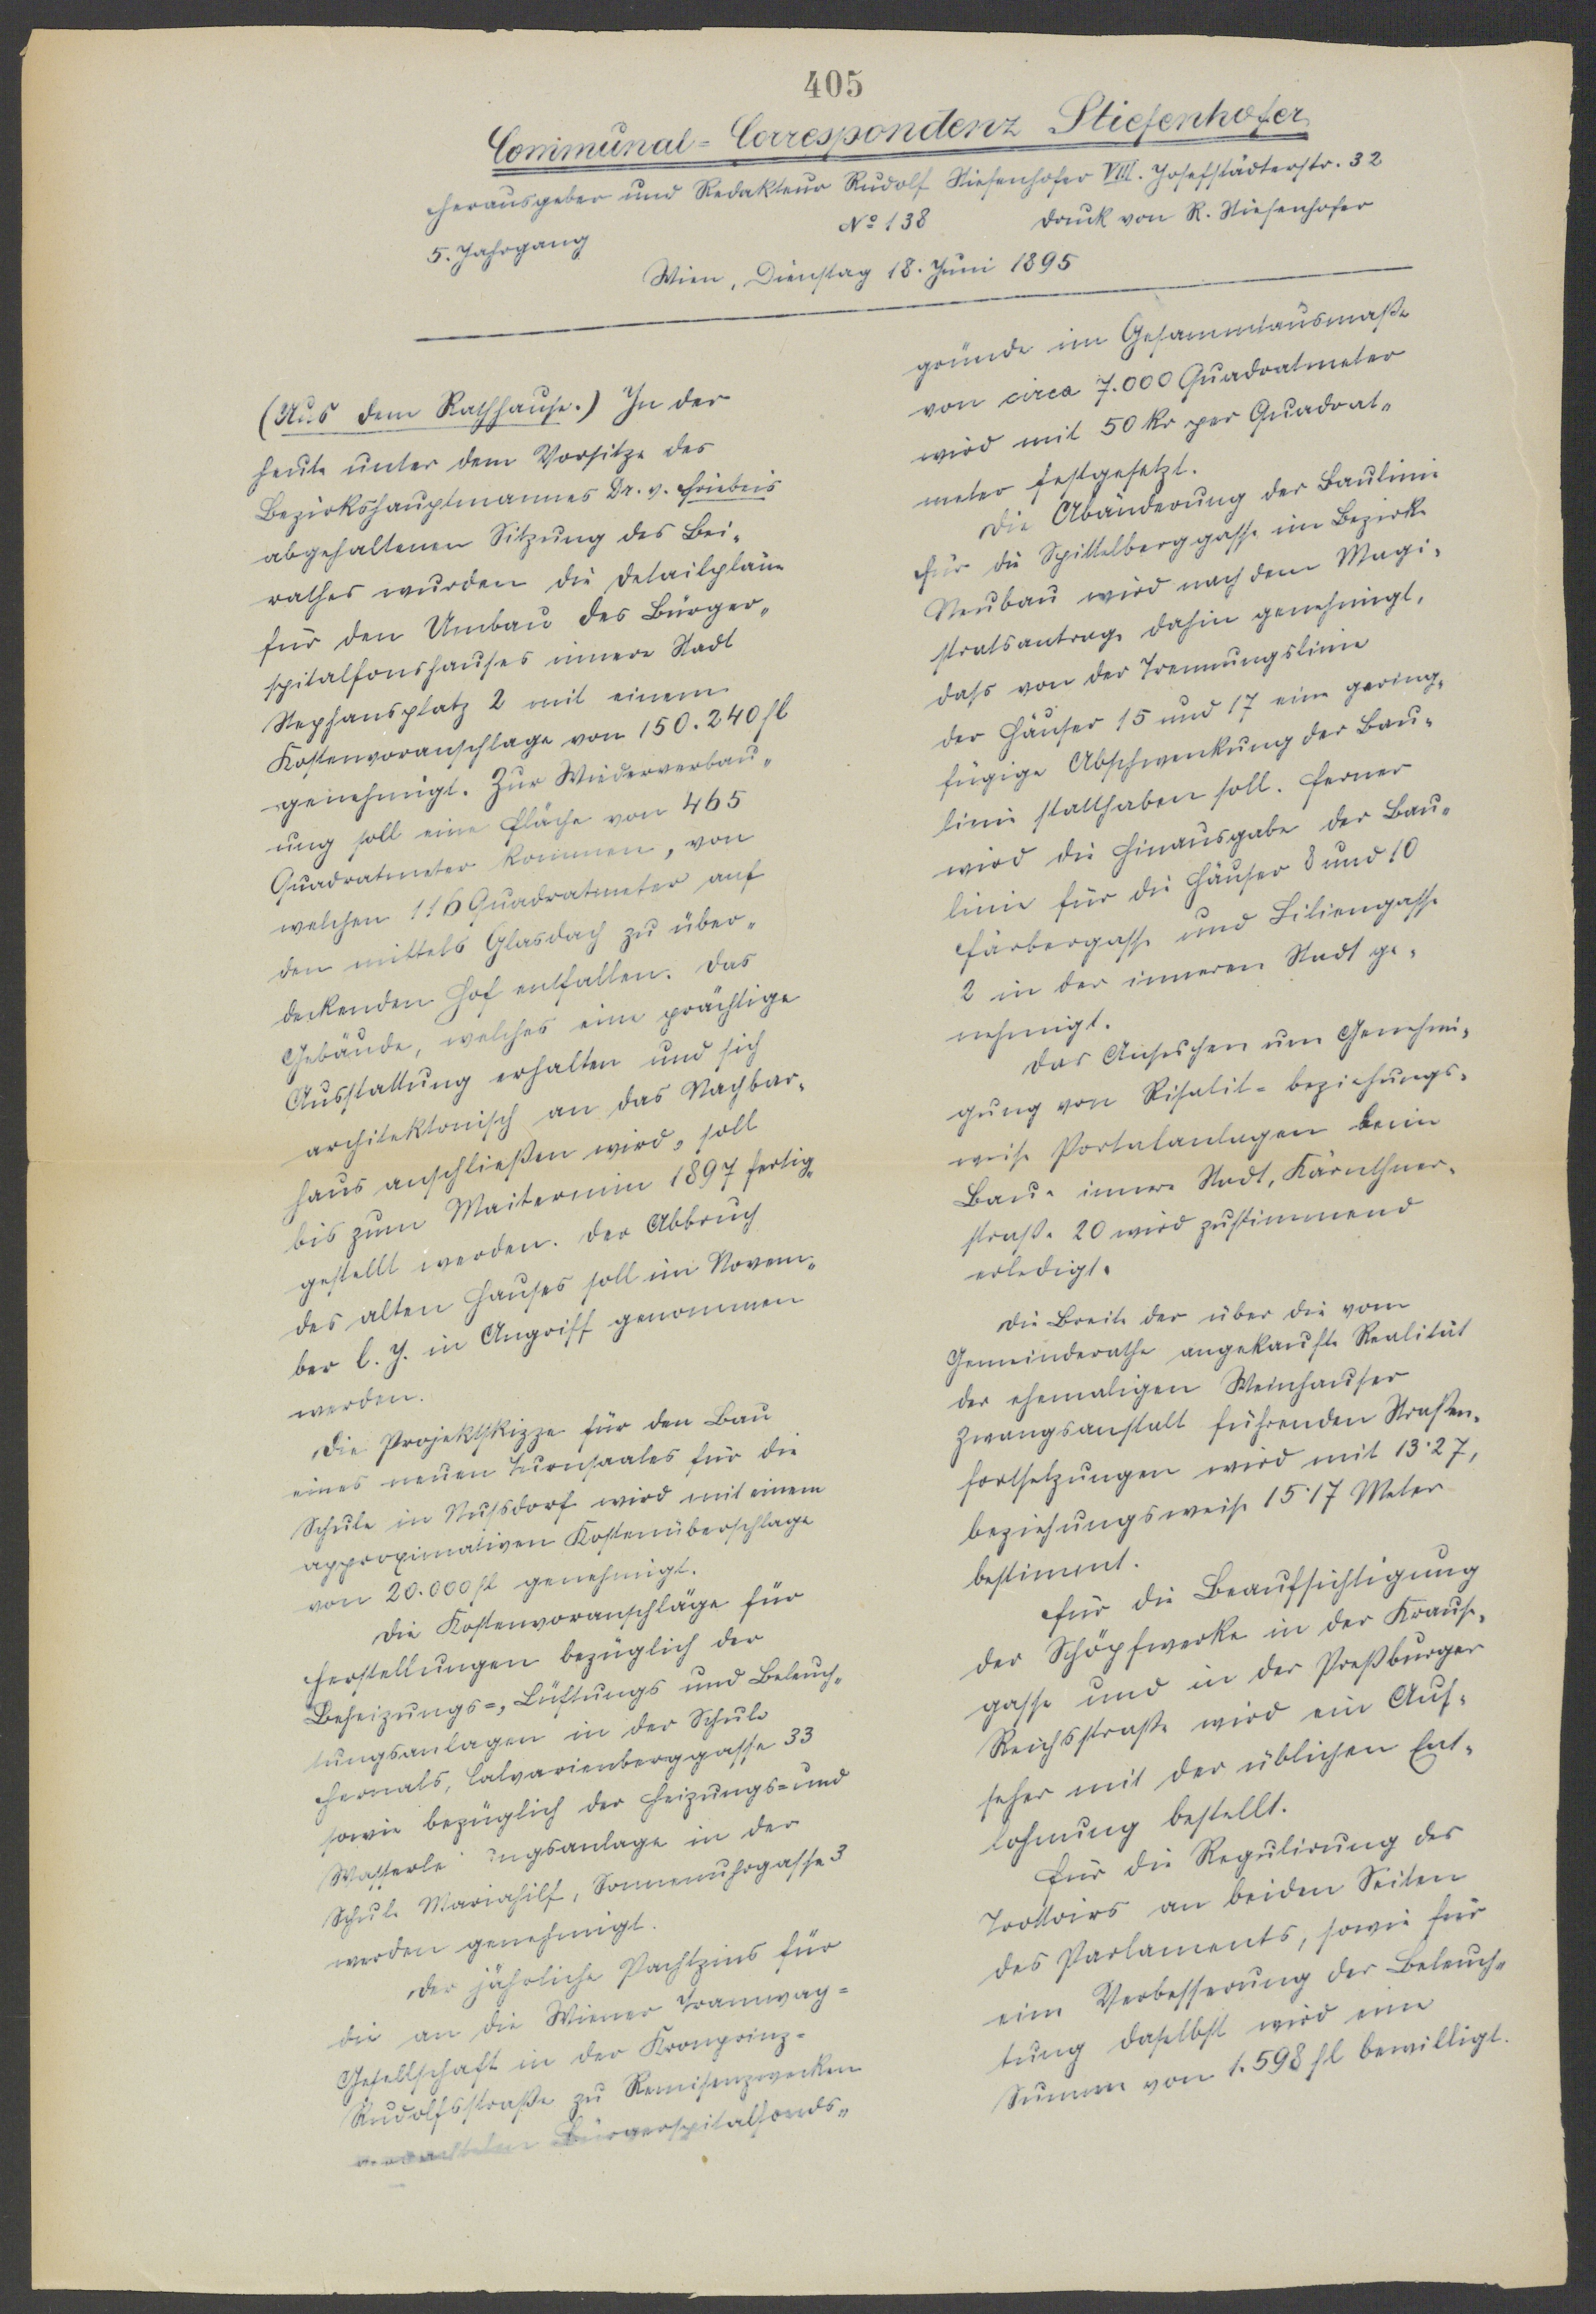 405
Communal=Correspondenz Stiefenhofer
Herausgeber und Redakteur Rudolf Stiefenhofer VIII. Josefstädterstr. 32
5. Jahrgang No 138 Druck von R. Stiefenhofer
Wien, Dienstag 18. Juni 1895
(Aus dem Rathhause.) In der
heute unter dem Vorsitze des
Bezirkshauptmannes Dr. v. Friebeis
abgehaltenen Sitzung des Bei-
rathes wurden die Detailpläne
für den Umbau des Bürger-
spitalfondshauses innere Stadt
Stephansplatz 2 mit einem
Kostenvoranschlage von 150.240 fl
genehmigt. Zur Wiederverbau-
ung soll eine Fläche von 465
Quadratmeter kommen, von
welchen 116 Quadratmeter auf
den mittels Glasdach zu über-
deckenden Hof entfallen. Das
Gebäude, welches eine prächtige
Ausstattung erhalten und sich
architektonisch an das Nachbar-
haus anschließen wird, soll
bis zum Maitermin 1897 fertig-
gestellt werden. Der Abbruch
des alten Hauses soll im Novem-
ber l. J. in Angriff genommen
werden.
Die Projektskizze für den Bau
eines neuen Turnsaales für die
Schule in Nussdorf wird mit einem
approximativen Kostenüberschlage
von 20.000 fl genehmigt.
Die Kostenvoranschläge für
Herstellungen bezüglich der
Beheizungs=, Lüftungs und Beleuch-
tungsanlagen in der Schule
Hernals, Calvarienberggasse 33
sowie bezüglich der Heizungs= und
Wasserle ungsanlage in der
Schule Mariahilf, Sonnenuhrgasse 3
werden genehmigt.
Der jährliche Pachtzins für
die an die Wiener Tramway=
Gesellschaft in der Kronprinz=
Rudolfsstraße zu Remisenzwecken
verpachteten Bürgerspitalfonds-
gründe im Gesammtausmaße
von circa 7.000 Quadratmeter
wird mit 50 kr per Quadrat-
meter festgesetzt.
Die Abänderung der Baulinie
für die Spittelberggasse im Bezirke
Neubau wird nach dem Magi-
stratsantrage dahin genehmigt,
dass von der Trennungslinie
der Häuser 15 und 17 eine gering-
fügige Abschwenkung der Bau-
linie statthaben soll. Ferner
wird die Hinausgabe der Bau-
linie für die Häuser 8 und 10
Färbergasse und Liliengasse
2 in der inneren Stadt ge-
nehmigt.
Das Ansuchen um Genehmi-
gung von Risalit= beziehungs-
weise Portalanlagen beim
Baue innere Stadt, Kärnthner-
straße 20 wird zustimmend
erledigt.
Die Breite der über die vom
Gemeinderathe angekaufte Realität
der ehemaligen Weinhauser
Zwangsanstalt führenden Straßen-
fortsetzungen wird mit 13·27,
beziehungsweise 15·17 Meter
bestimmt.
Für die Beaufsichtigung
der Schöpfwerke in der Krause-
gasse und in der Preßburger
Reichsstraße wird ein Auf-
seher mit der üblichen Ent-
lohnung bestellt.
Für die Regulirung des
Trottoirs an beiden Seiten
des Parlaments, sowie für
eine Verbesserung der Beleuch-
tung daselbst wird eine
Summe von 1.598 fl bewilligt.